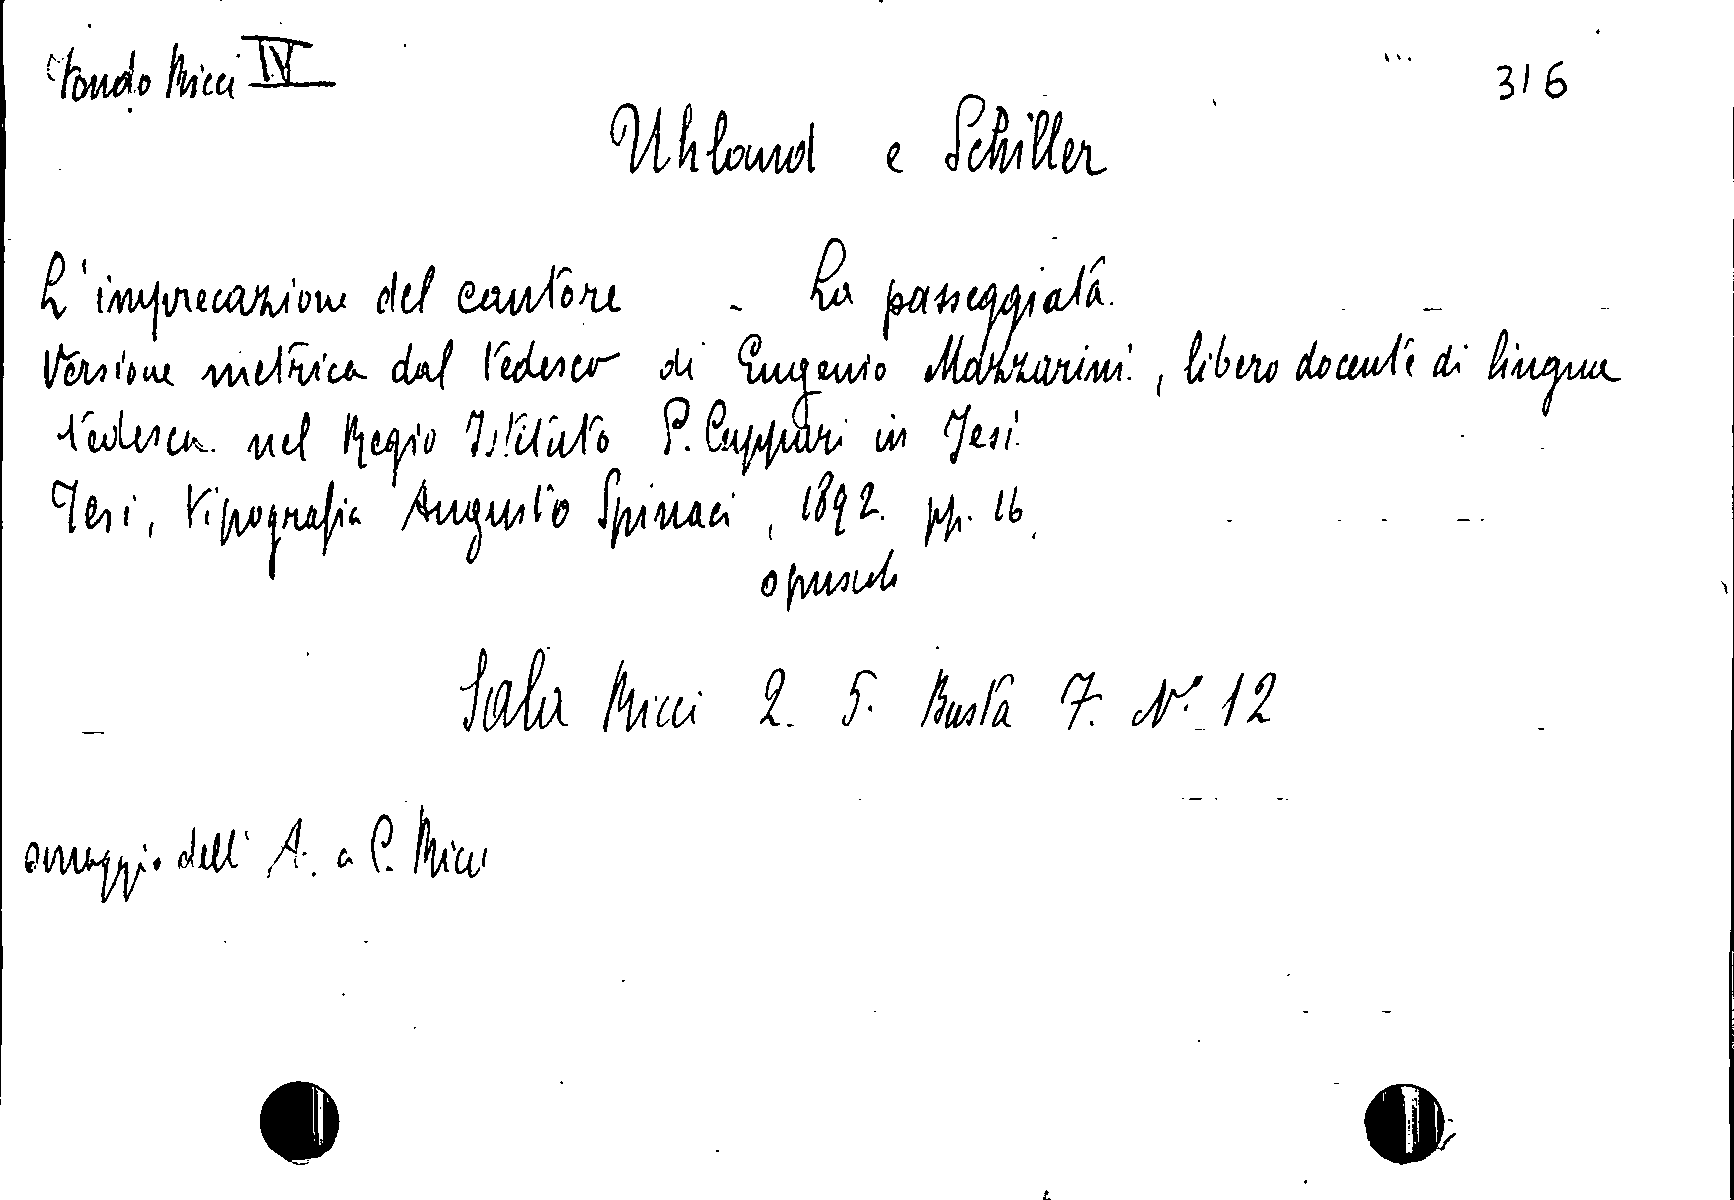 Fondo Ricci IV
316
Uhland e Schiller
L'imprecazione del cantore - La passeggiata.
Versione metrica dal tedesco di Eugenio Mazzarini, libero docente di lingua
tedesca nel Regio Istituto P. Cuppari in Jesi.
Jesi, Tipografia Augusto Spinaci, 1892. pp. 16.
opuscolo
Sala Ricci 2. 5. Busta 7. N.° 12
omaggio dell'A. a P. Ricci